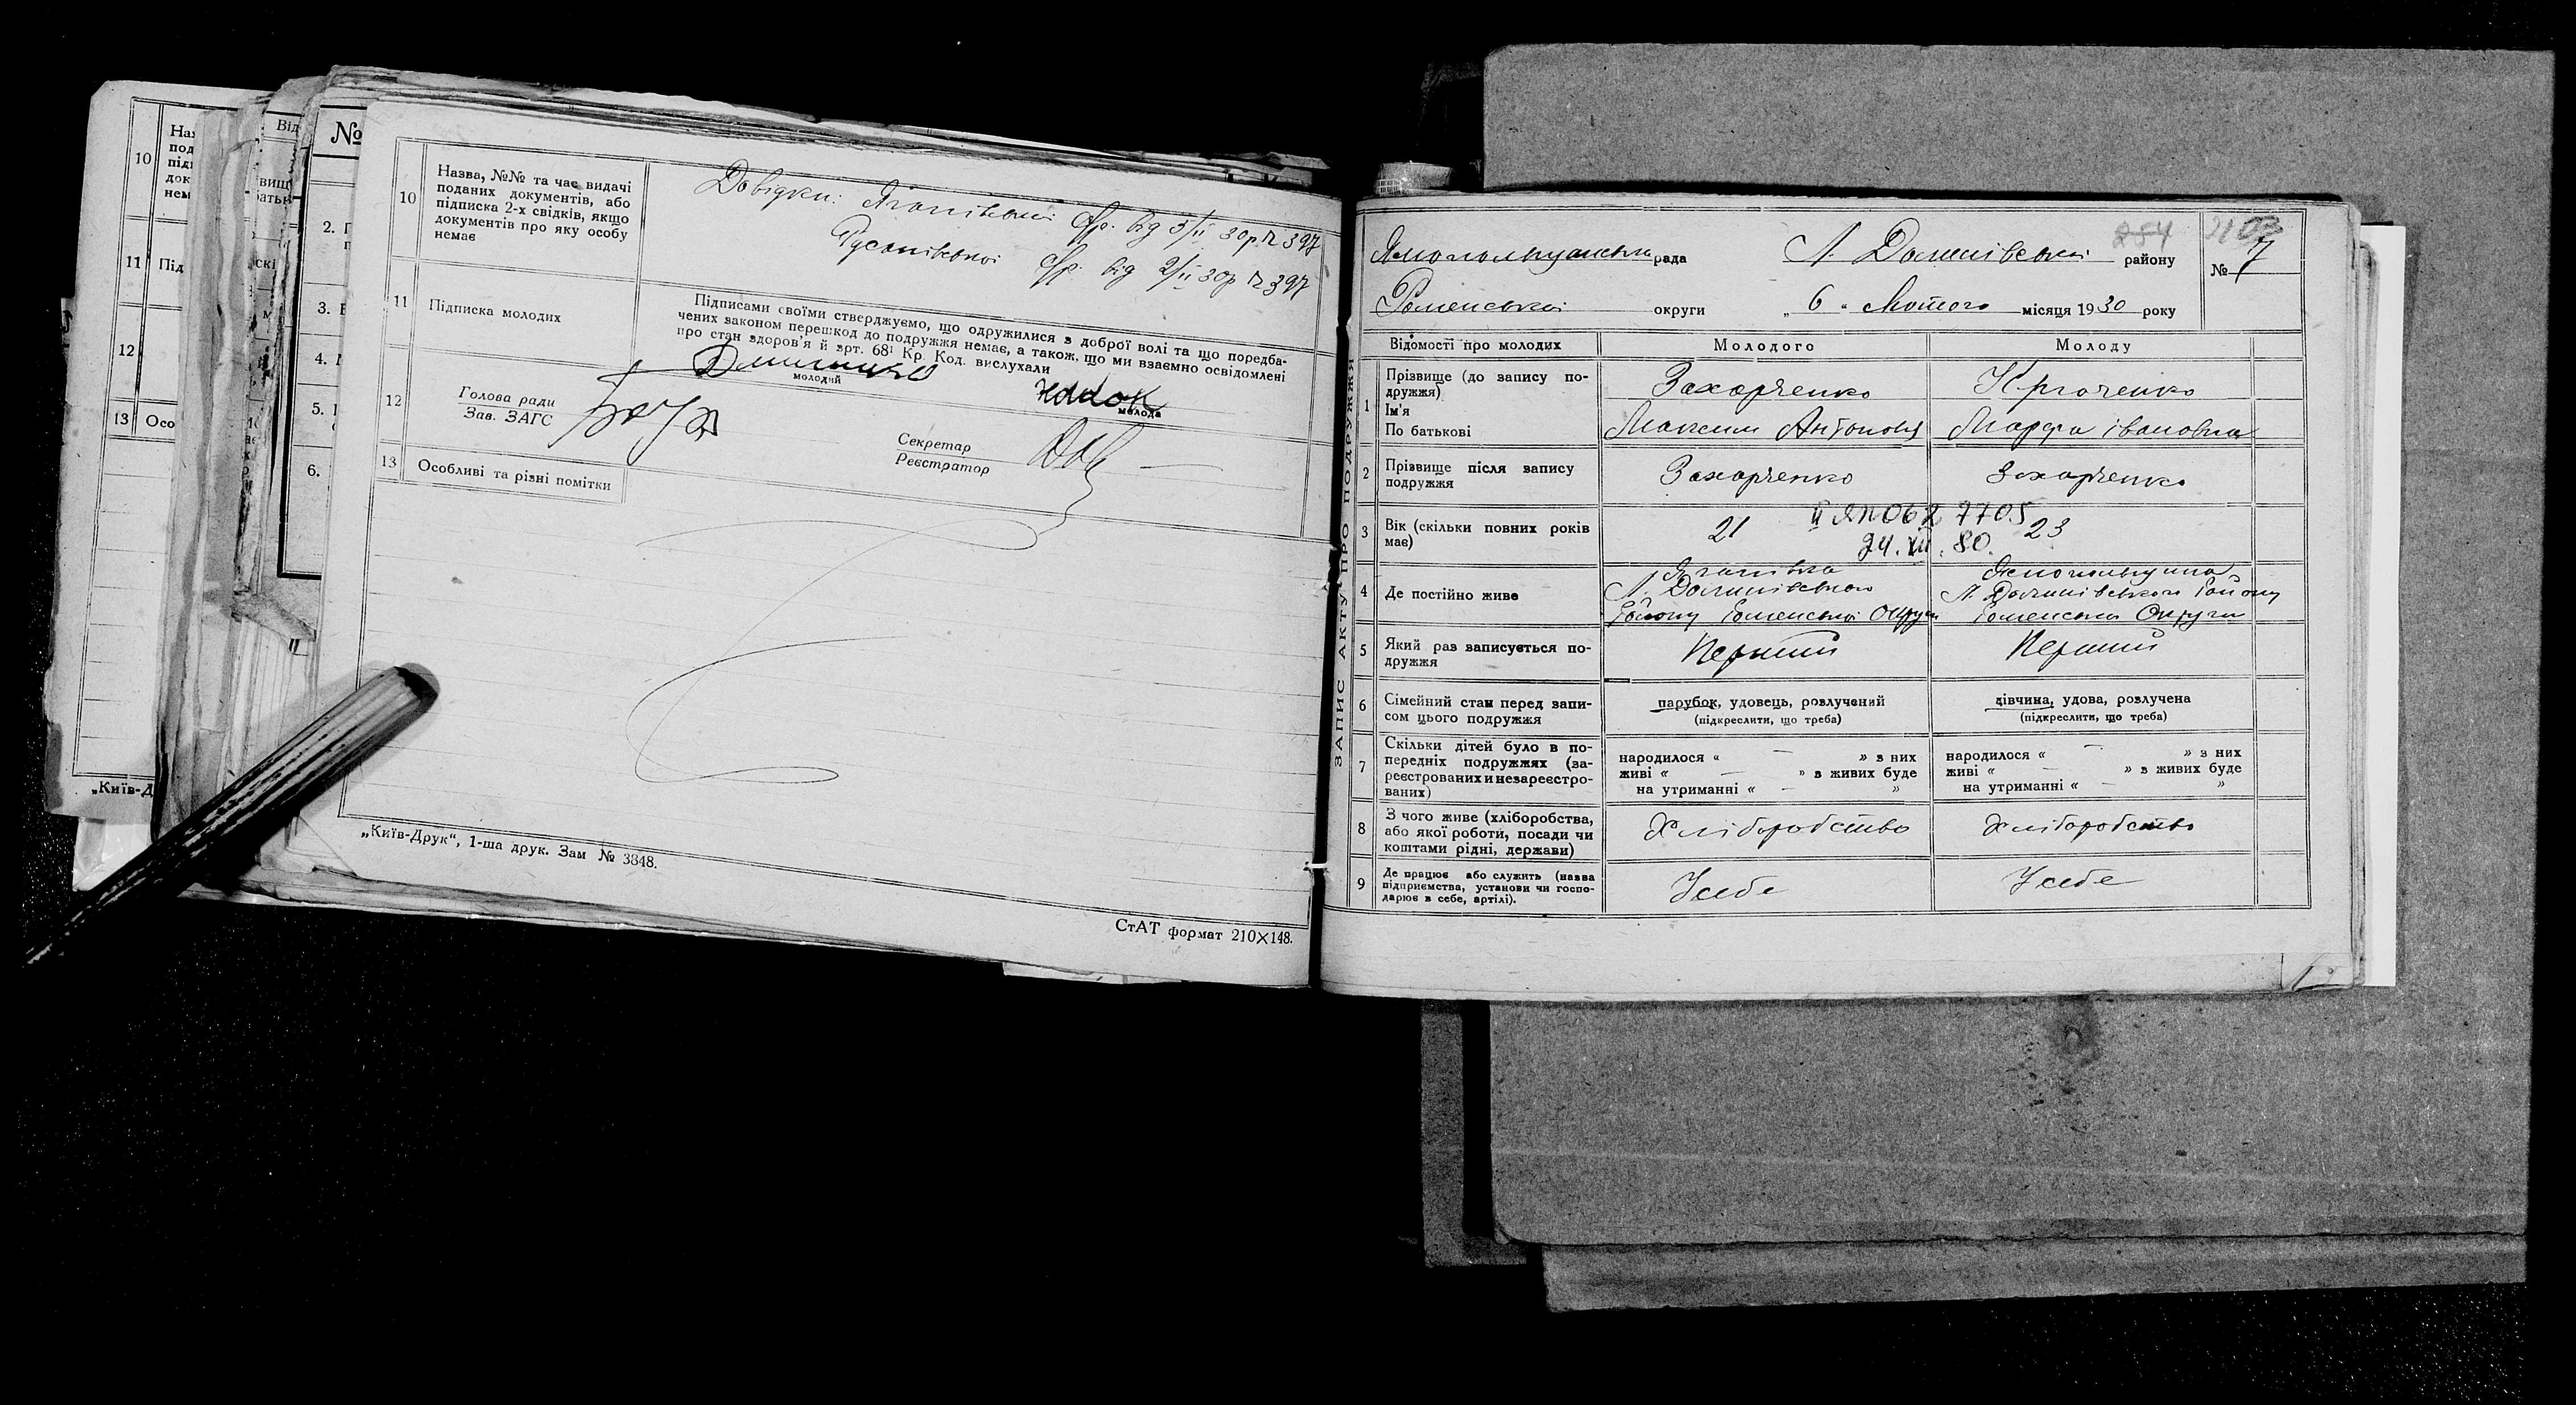 10
На
під
док
нем
11 Під
12
13 Осо
„Київ-Д
Від
№
2.
3.
4.
5.
6.
10
Назва, №№ та час видачі
поданих документів, або
підписка 2-х свідків, якщо
документів про яку особу
немає
Довідки:
с/р. від 5/II 30р. № 397
с/р. від 2/II 30р № 397
11
Підписка молодих
Підписами своїми стверджуємо, що одружилися з доброї волі та що поредба-
чених законом перешкод до подружжя немає, а також, що ми взаємно освідомлені
про стан здоров'я й арт. 68¹ Кр. Код. вислухали
молодий
молода
12
Голова ради
Зав. ЗАГС
Секретар
Реєстратор
13
Особливі та різні помітки
„Київ-Друк“, 1-ша друк. Зам № 3848.
СтАТ формат 210×148.
ЗАПИС АКТУ ПРО ПОДРУЖЖЯ
254
рада Л. Долинівської району
№ 7
Роменської округи „ 6 “ Лютого місяця 1930 року
Відомості про молодих
Молодого
Молоду
1
Прізвище (до запису по-
дружжя)
Ім'я
По батькові
Захарченко
Максим Антонов
Марфа Івановна
2
Прізвище після запису
подружжя
Захарченко
Захарченко
3
Вік (скільки повних років
має)
21
23
II ЯП 062 7705
24.XII.80.
4
Де постійно живе
Л. Долинівського
Району Роменської Округи
Л. Долинівського Району
Роменської Округи
5
Який раз записується по-
дружжя
Перший
Перший
6
Сімейний стан перед запи-
сом цього подружжя
парубок, удовець, розлучений
(підкреслити, що треба)
дівчина, удова, розлучена
(підкреслити, що треба)
7
Скільки дітей було в по-
передніх подружжях (за-
реєстрованих и незареєстро-
ваних)
народилося « — » з них
живі « — » з живих буде
на утриманні « — »
народилося « — » з них
живі « — » з живих буде
на утриманні « — »
8
З чого живе (хліборобства,
або якої роботи, посади чи
коштами рідні, держави)
Хліборобство
Хліборобство
9
Де працює або служить (назва
підприємства, установи чи госпо-
дарює в себе, артілі).
У себе
У себе